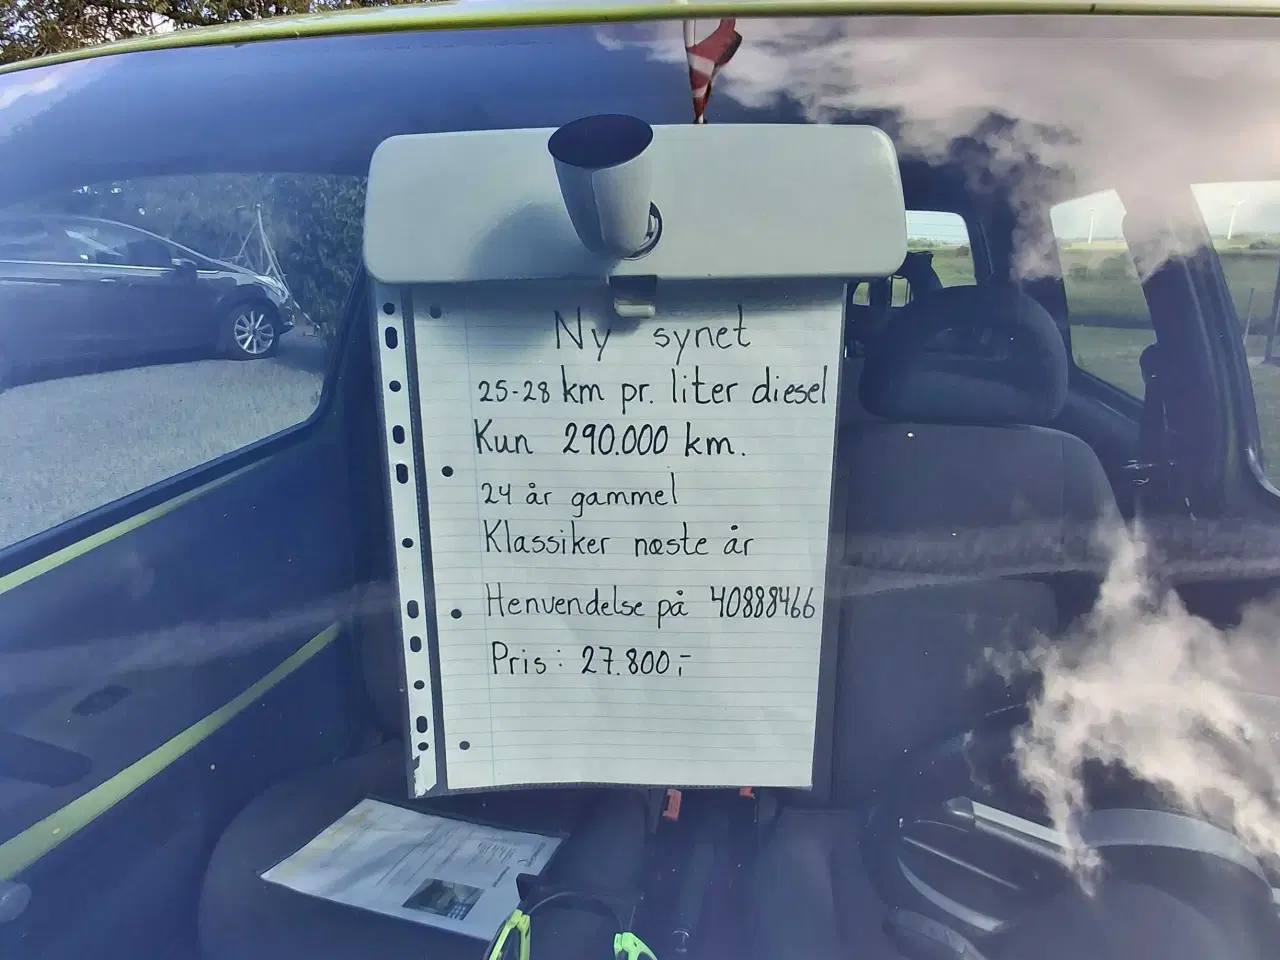 Ny synet
25-28 km pr. liter diesel
Kun 290.000 km.
24 år gammel
Klassiker næste år
Henvendelse på 40888466
Pris: 27.800,-